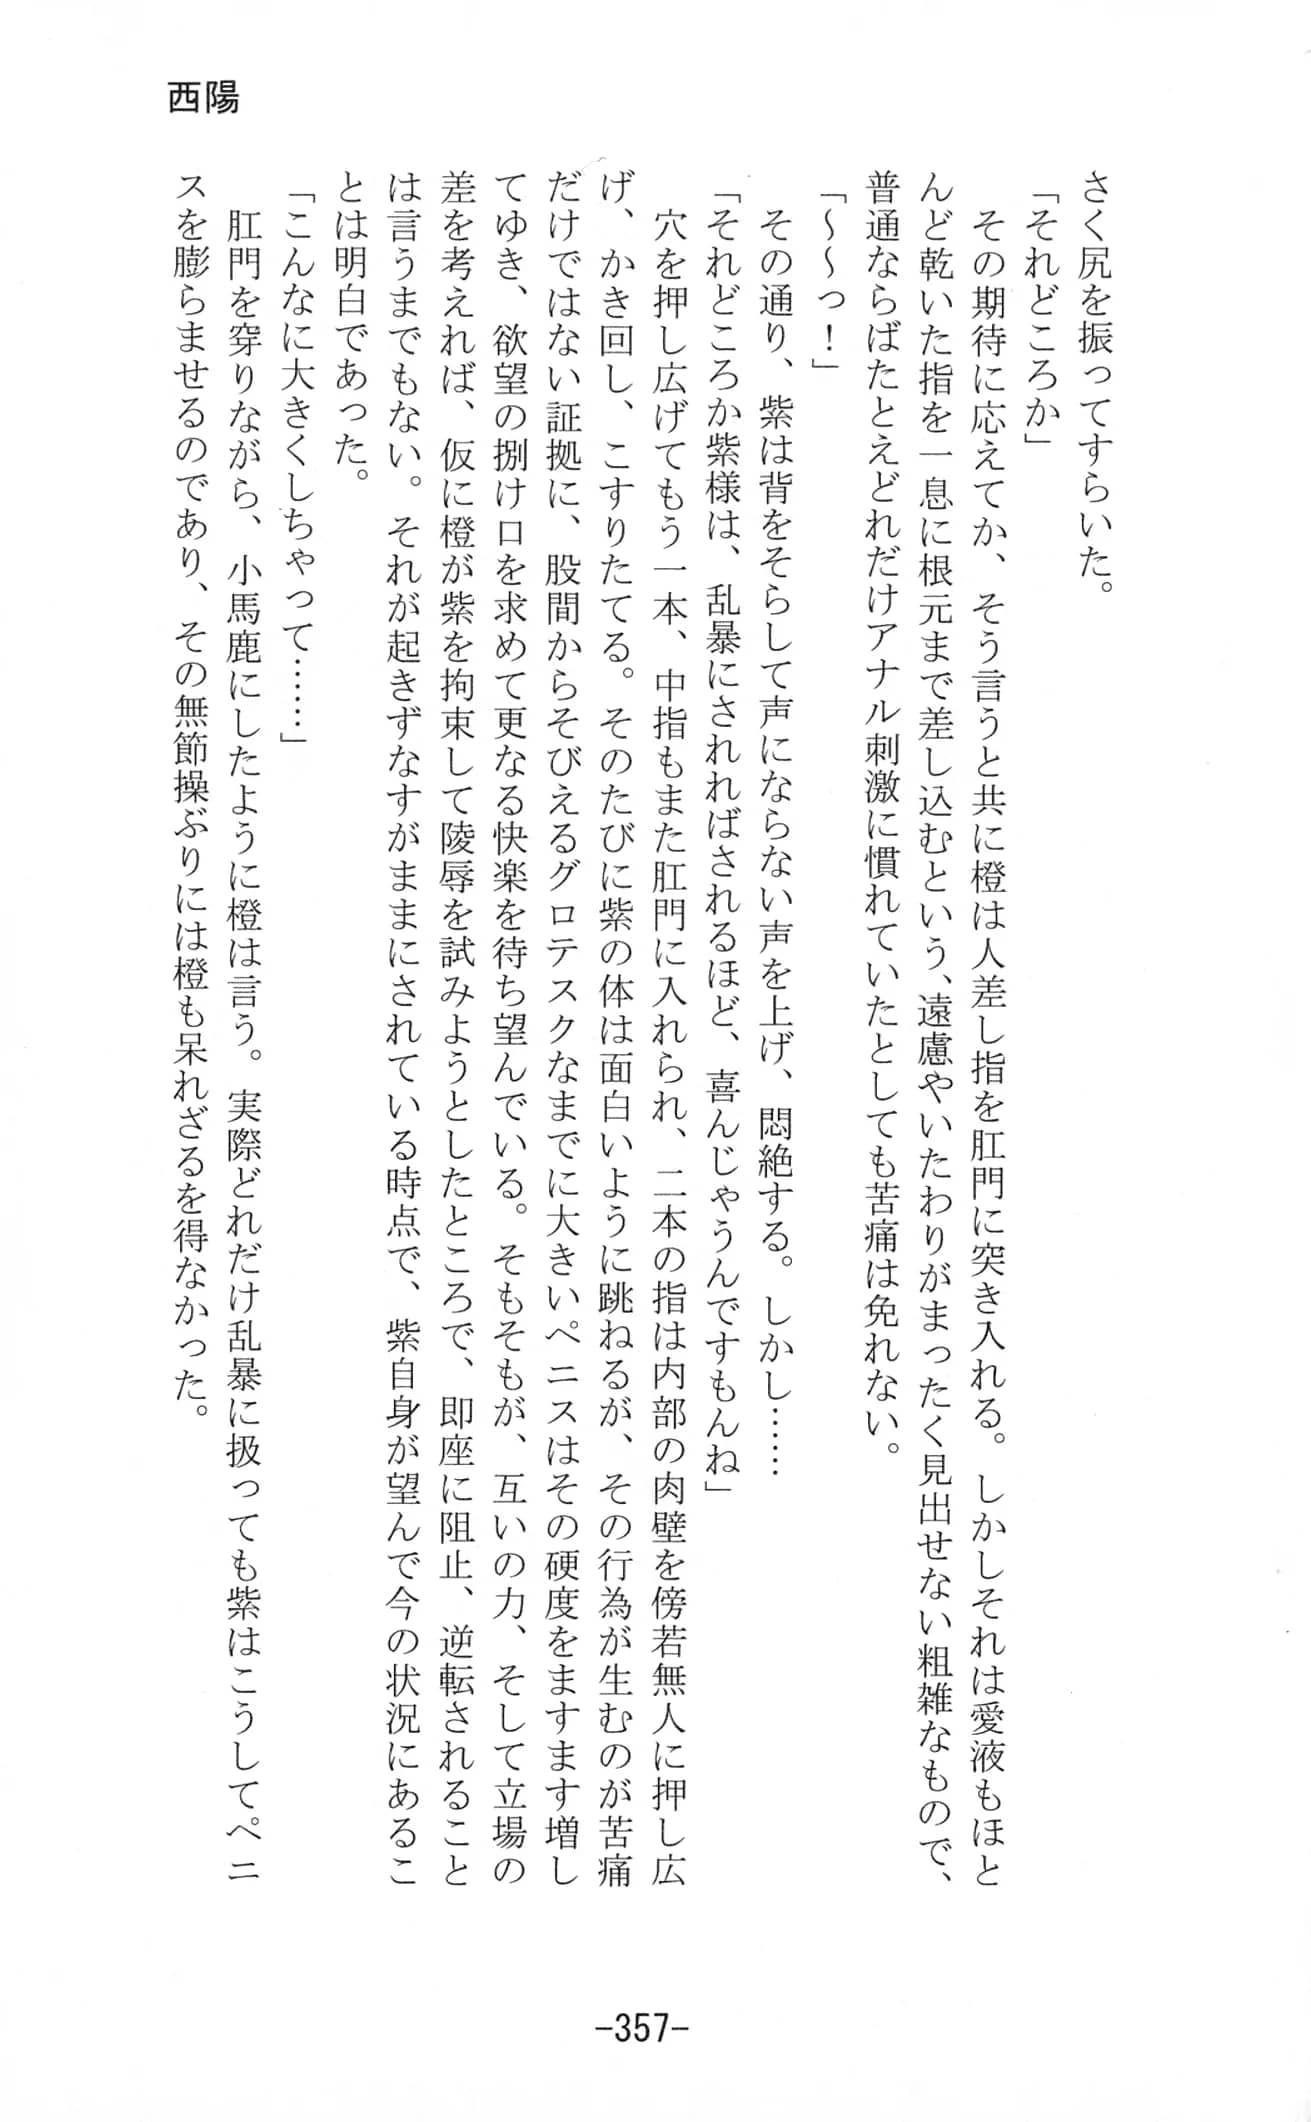 西陽
さく尻を振ってすらいた。
「それどころか」
その期待に応えてか、そう言うと共に橙は人差し指を肛門に突き入れる。しかしそれは愛液もほと
んど乾いた指を一息に根元まで差し込むという、遠慮やいたわりがまったく見出せない粗雑なもので、
普通ならばたとえどれだけアナル刺激に慣れていたとしても苦痛は免れない。
「～～っ！」
その通り、紫は背をそらして声にならない声を上げ、悶絶する。しかし……
「それどころか紫様は、乱暴にされればされるほど、喜んじゃうんですもんね」
穴を押し広げてもう一本、中指もまた肛門に入れられ、二本の指は内部の肉壁を傍若無人に押し広
げ、かき回し、こすりたてる。そのたびに紫の体は面白いように跳ねるが、その行為が生むのが苦痛
だけではない証拠に、股間からそびえるグロテスクなまでに大きいペニスはその硬度をますます増し
てゆき、欲望の捌け口を求めて更なる快楽を待ち望んでいる。そもそもが、互いの力、そして立場の
差を考えれば、仮に橙が紫を拘束して陵辱を試みようとしたところで、即座に阻止、逆転されること
は言うまでもない。それが起きずなすがままにされている時点で、紫自身が望んで今の状況にあるこ
とは明白であった。
「こんなに大きくしちゃって……」
肛門を穿りながら、小馬鹿にしたように橙は言う。実際どれだけ乱暴に扱っても紫はこうしてペニ
スを膨らませるのであり、その無節操ぶりには橙も呆れざるを得なかった。
-357-